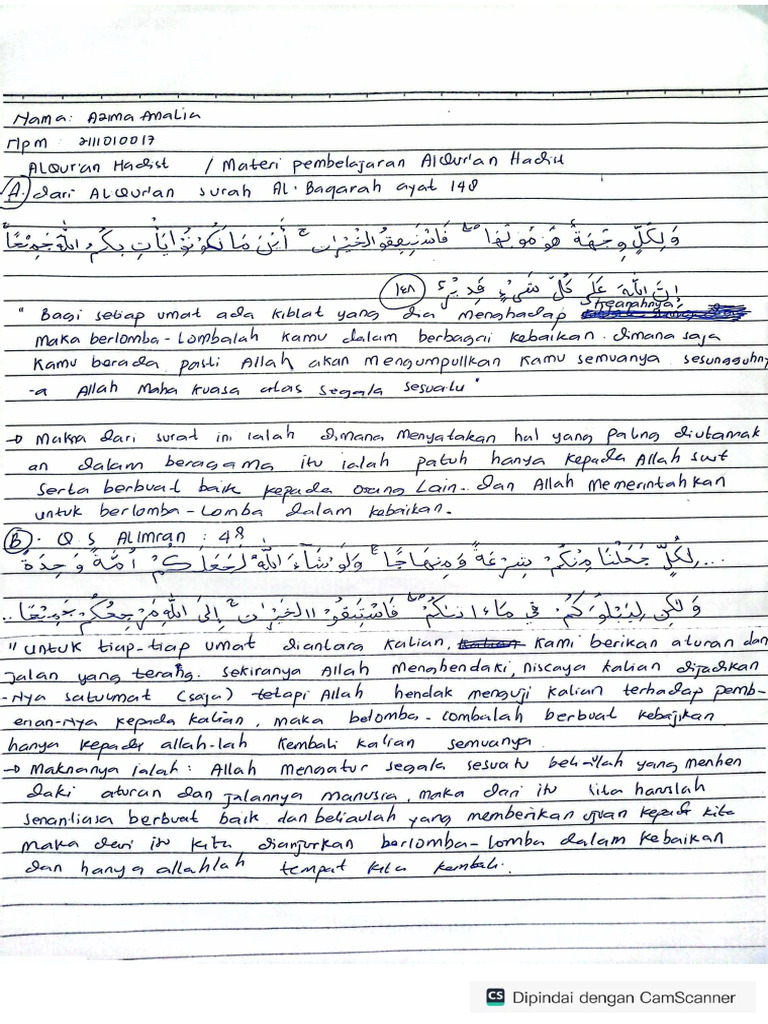 Nama: Azima Amalia
Npm : 2111010017
AlQur'an Hadist / Materi pembelajaran AlQur'an Hadist
A. dari AlQur'an surah Al-Baqarah ayat 148
وَلِكُلٍّ وِجْهَةٌ هُوَ مُوَلِّيْهَا فَاسْتَبِقُوا الْخَيْرَاتِ أَيْنَ مَا تَكُوْنُوْا يَأْتِ بِكُمُ اللهُ جَمِيْعًا
إِنَّ اللهَ عَلَى كُلِّ شَيْءٍ قَدِيْرٌ ١٤٨
"Bagi setiap umat ada kiblat yang dia menghadap kearahnya
maka berlomba-lombalah kamu dalam berbagai kebaikan. dimana saja
kamu berada pasti Allah akan mengumpullkan kamu semuanya sesungguhny
-a Allah Maha Kuasa atas segala sesuatu"
→ Makna dari surat ini ialah dimana menyatakan hal yang paling diutamak
an dalam beragama itu ialah patuh hanya kepada Allah swt
serta berbuat baik kepada orang Lain.. dan Allah memerintahkan
untuk berlomba-lomba dalam kebaikan.
B. Q.S AlImran : 48
... لِكُلٍّ جَعَلْنَا مِنْكُمْ شِرْعَةً وَمِنْهَاجًا وَلَوْ شَاءَ اللهُ لَجَعَلَكُمْ أُمَّةً وَاحِدَةً
وَلَكِنْ لِيَبْلُوَكُمْ فِي مَاءَاتَاكُمْ فَاسْتَبِقُوا الخَيْرَاتِ إِلَى اللهِ مَرْجِعُكُمْ جَمِيْعًا..
"untuk tiap-tiap umat diantara kalian, kalian kami berikan aturan dan
jalan yang terang. sekiranya Allah menghendaki, niscaya kalian dijadikan
-Nya satuumat (saja) tetapi Allah hendak menguji kalian terhadap pemb-
erian-Nya kepada kalian, maka belomba-lombalah berbuat kebajikan
hanya kepada allah-lah kembali kalian semuanya.
→ Maknanya ialah: Allah mengatur segala sesuatu yang menhen
daki aturan dan jalannya manusia, maka dari itu kita haruslah
senantiasa berbuat baik dan beliaulah yang memberikan ujian kepada kita
maka dari itu kita dianjurkan berlomba-lomba dalam kebaikan
dan hanya allahlah tempat kita kembali.
CS Dipindai dengan CamScanner